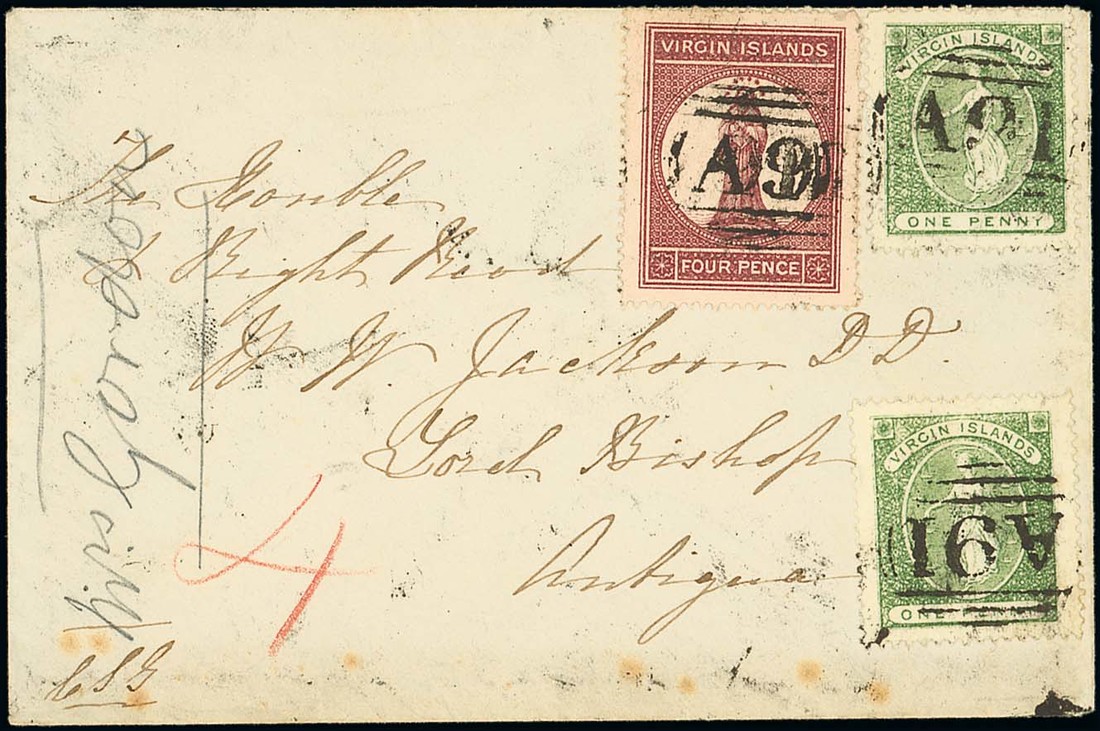 VIRGIN ISLANDS
FOUR PENCE
A91
VIRGIN ISLANDS
ONE PENNY
A91
The Honble
& Right Revd
W. W. Jackson D.D.
Lord Bishop
Antigua
VIRGIN ISLANDS
ONE PENNY
A91
4
Mrs Gordon